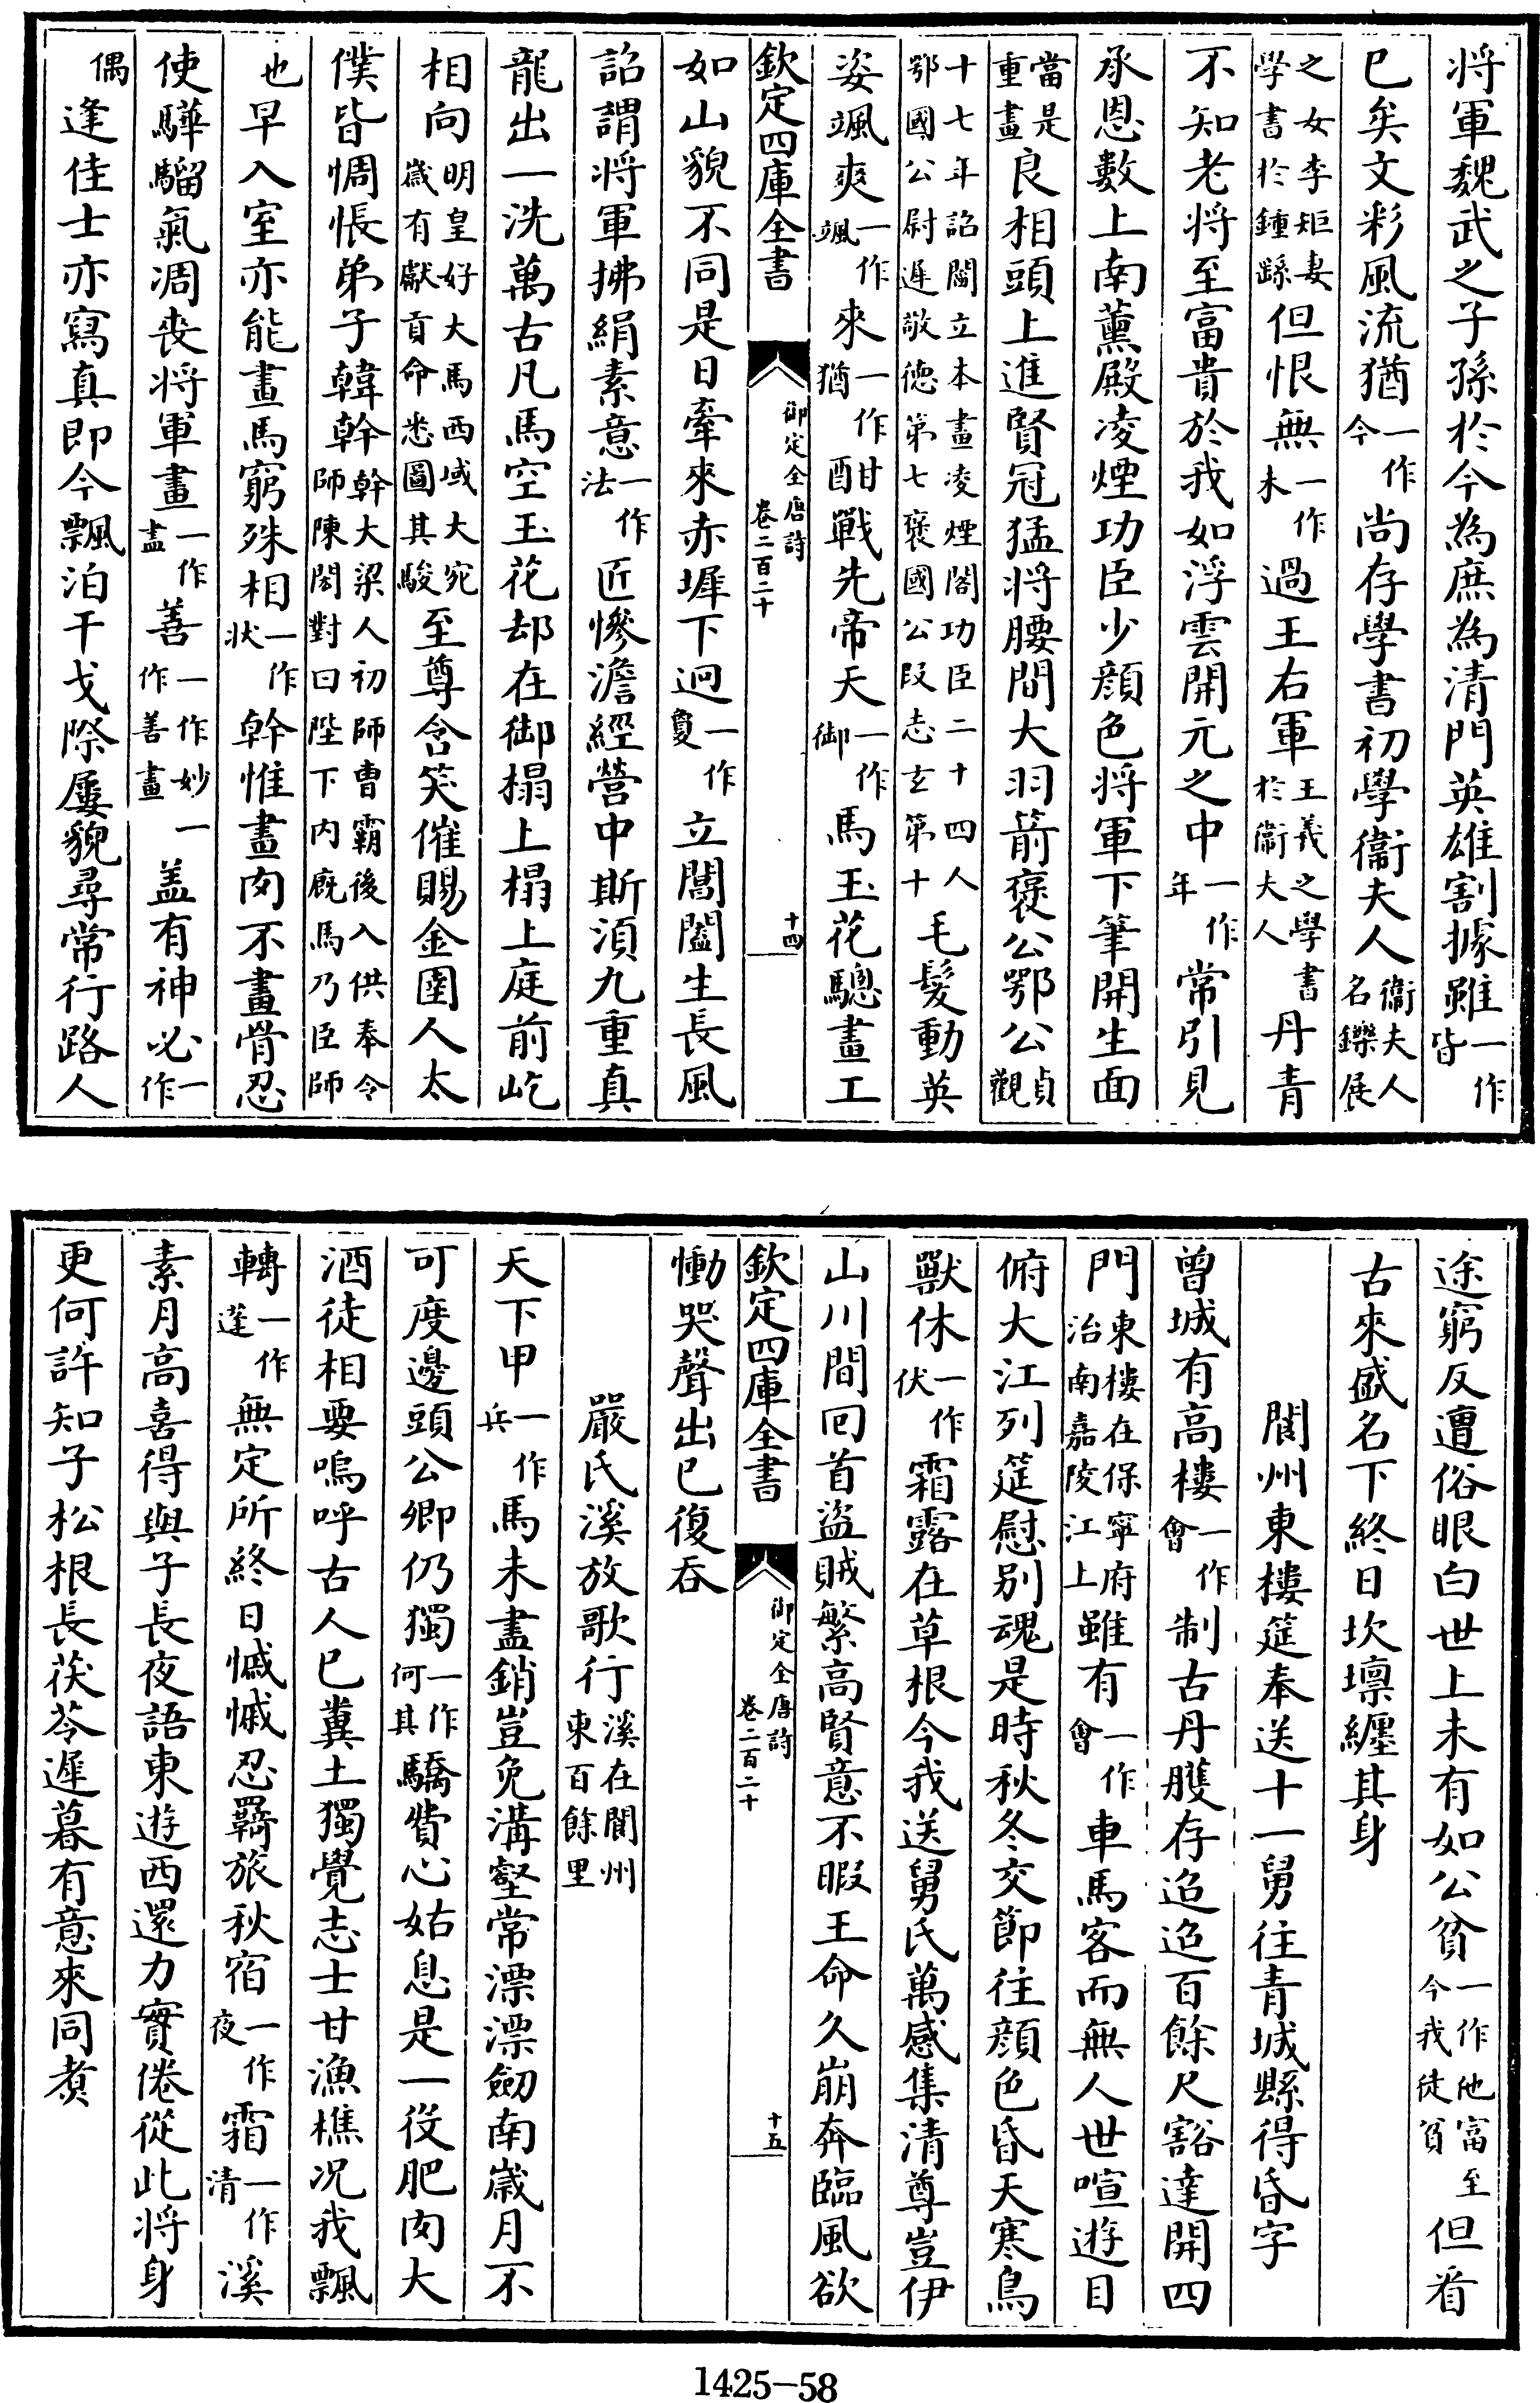 將軍魏武之子孫於今為庶為清門英雄割據雖一作皆
已矣文彩風流猶一作今尚存學書初學衞夫人衞夫人名鑠展
之女李矩妻學書於鍾繇但恨無一作未過王右軍王羲之學書於衞夫人丹青
不知老將至富貴於我如浮雲開元之中一作年常引見
承恩數上南薰殿凌煙功臣少顔色將軍下筆開生面
當是重畫良相頭上進賢冠猛將腰間大羽箭褒公鄂公貞觀
十七年詔閻立本畫凌煙閣功臣二十四人鄂國公尉遲敬德第七褒國公段志玄第十毛髮動英
姿颯爽一作颯來一作猶酣戰先帝天一作御馬玉花驄畫工
欽定四庫全書 御定全唐詩卷二百二十 十四
如山貌不同是日牽來赤墀下迥一作夐立閶闔生長風
詔謂將軍拂絹素意一作法匠慘澹經營中斯湏九重真
龍出一洗萬古凡馬空玉花却在御榻上榻上庭前屹
相向明皇好大馬西域大宛歲有獻貢命悉圖其駿至尊含笑催賜金圉人太
僕皆惆悵弟子韓幹幹大梁人初師曹霸後入供奉令師陳閎對曰陛下内廐馬乃臣師
也早入室亦能畫馬窮殊相一作狀幹惟畫肉不畫骨忍
使驊騮氣凋喪將軍畫一作盡善一作妙一作善畫盖有神必一作
偶逢佳士亦寫真即今飄泊干戈際屢貌尋常行路人
途窮反遭俗眼白世上未有如公貧一作他富至今我徒貧但看
古來盛名下終日坎壈纒其身
閬州東樓筵奉送十一舅往青城縣得昏字
曾城有高樓一作會制古丹雘存迢迢百餘尺豁達開四
門東樓在保寧府治南嘉陵江上雖有一作會車馬客而無人世喧遊目
俯大江列筵慰别魂是時秋冬交節往顔色昏天寒鳥
獸休一作伏霜露在草根今我送舅氏萬感集清尊豈伊
山川間回首盜賊繁高賢意不暇王命久崩奔臨風欲
欽定四庫全書 御定全唐詩卷二百二十 十五
慟哭聲出已復吞
嚴氏溪放歌行溪在閬州東百餘里
天下甲一作兵馬未盡銷豈免溝壑常漂漂劒南歲月不
可度邊頭公卿仍獨一作何其驕費心姑息是一役肥肉大
酒徒相要嗚呼古人已糞土獨覺志士甘漁樵况我飄
轉一作蓬無定所終日慽慽忍羇旅秋宿一作夜霜一作清溪
素月高喜得與子長夜語東遊西還力實倦從此將身
更何許知子松根長茯苓遲暮有意來同煑
1425-58